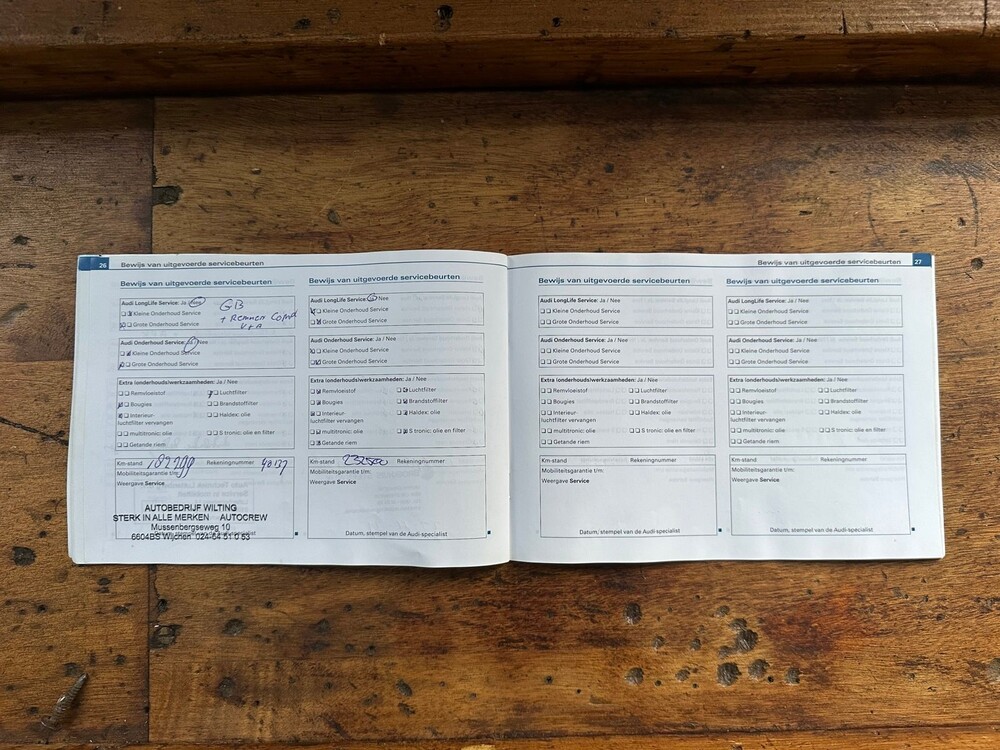 26 Bewijs van uitgevoerde servicebeurten
Bewijs van uitgevoerde servicebeurten
Audi LongLife Service: Ja / Nee
Kleine Onderhoud Service
Grote Onderhoud Service
GB
+ Remmen
V+A
Audi Onderhoud Service: Ja / Nee
Kleine Onderhoud Service
Grote Onderhoud Service
Extra (onderhouds)werkzaamheden: Ja / Nee
Remvloeistof Luchtfilter
Bougies Brandstoffilter
Interieur- Haldex: olie
luchtfilter vervangen
multitronic: olie S tronic: olie en filter
Getande riem
Km-stand 182799 Rekeningnummer 48137
Mobiliteitsgarantie t/m:
Weergave Service
AUTOBEDRIJF WILTING
STERK IN ALLE MERKEN AUTOCREW
Mussenbergseweg 10
6604BS Wijchen 024-64 51 0 53
Bewijs van uitgevoerde servicebeurten
Audi LongLife Service: Ja / Nee
Kleine Onderhoud Service
Grote Onderhoud Service
Audi Onderhoud Service: Ja / Nee
Kleine Onderhoud Service
Grote Onderhoud Service
Extra (onderhouds)werkzaamheden: Ja / Nee
Remvloeistof Luchtfilter
Bougies Brandstoffilter
Interieur- Haldex: olie
luchtfilter vervangen
multitronic: olie S tronic: olie en filter
Getande riem
Km-stand 232500 Rekeningnummer
Mobiliteitsgarantie t/m:
Weergave Service
Datum, stempel van de Audi-specialist
Bewijs van uitgevoerde servicebeurten 27
Bewijs van uitgevoerde servicebeurten
Audi LongLife Service: Ja / Nee
Kleine Onderhoud Service
Grote Onderhoud Service
Audi Onderhoud Service: Ja / Nee
Kleine Onderhoud Service
Grote Onderhoud Service
Extra (onderhouds)werkzaamheden: Ja / Nee
Remvloeistof Luchtfilter
Bougies Brandstoffilter
Interieur- Haldex: olie
luchtfilter vervangen
multitronic: olie S tronic: olie en filter
Getande riem
Km-stand Rekeningnummer
Mobiliteitsgarantie t/m:
Weergave Service
Datum, stempel van de Audi-specialist
Bewijs van uitgevoerde servicebeurten
Audi LongLife Service: Ja / Nee
Kleine Onderhoud Service
Grote Onderhoud Service
Audi Onderhoud Service: Ja / Nee
Kleine Onderhoud Service
Grote Onderhoud Service
Extra (onderhouds)werkzaamheden: Ja / Nee
Remvloeistof Luchtfilter
Bougies Brandstoffilter
Interieur- Haldex: olie
luchtfilter vervangen
multitronic: olie S tronic: olie en filter
Getande riem
Km-stand Rekeningnummer
Mobiliteitsgarantie t/m:
Weergave Service
Datum, stempel van de Audi-specialist